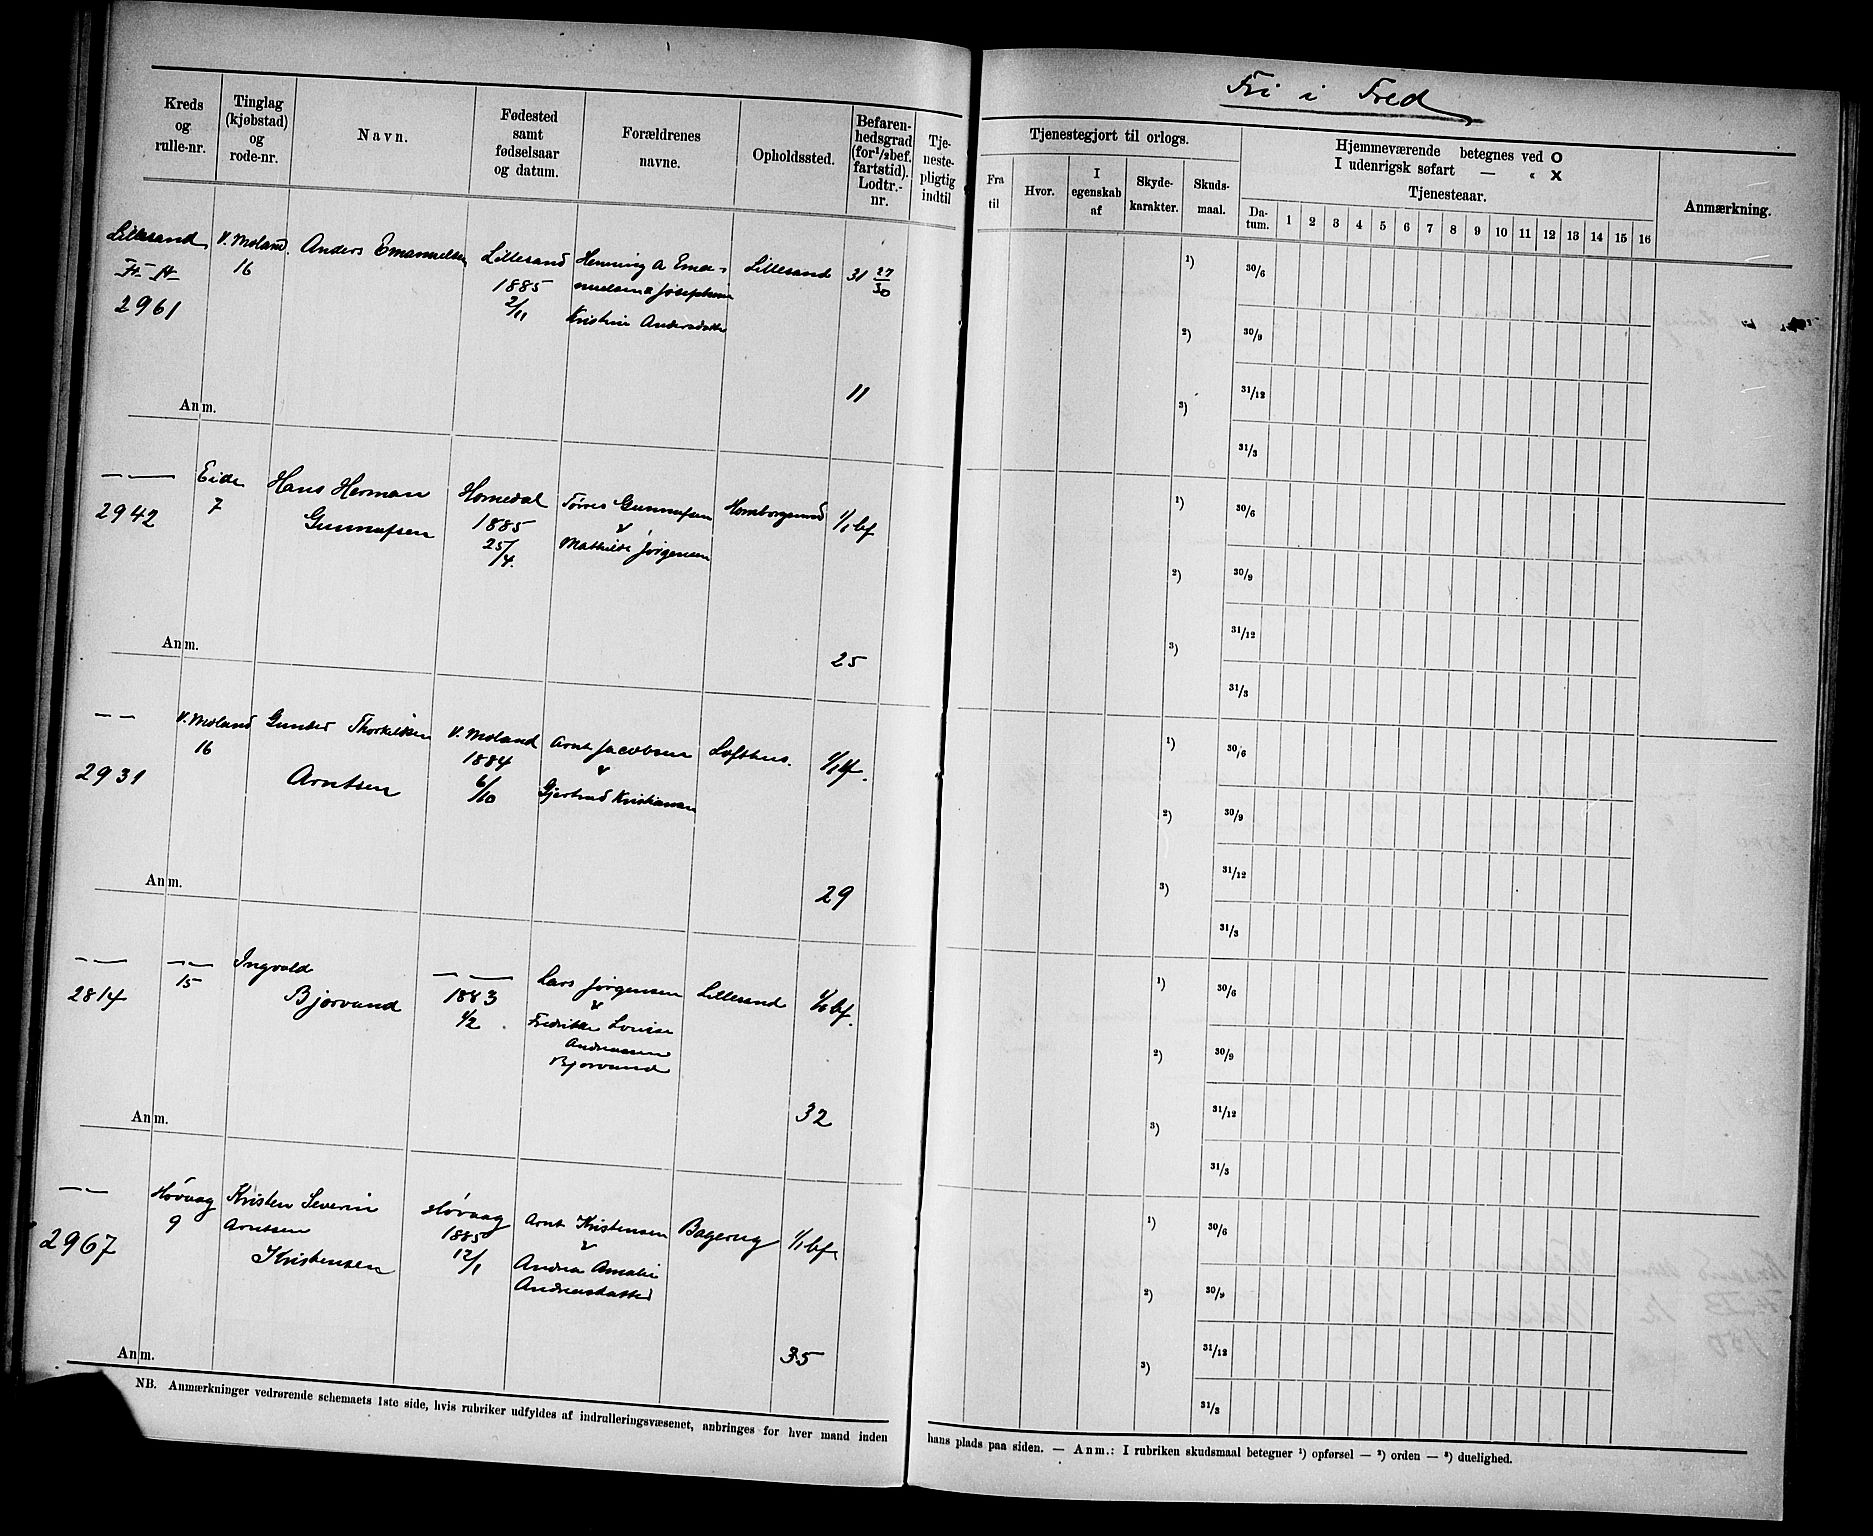 Kreds og rulle-nr.
Tinglag (kjøbstad) og rode-nr.
Navn.
Fødested samt fødselsaar og datum.
Forældrenes navne.
Opholdssted.
Befaren-hedsgrad (for 1/1 bef. fartstid). Lodtr.-nr.
Tje-neste-pligtig indtil
Lillesand
2961
V. Moland
16
Anders Emanuelsen
Lillesand
1885
2/11
Henning A Ema-
nuelsen & Josephine
Kristine Andersdatter
Lillesand
31 27/30
11
Anm.
— —
2942
Eide
7
Hans Herman
Gunnufsen
Homedal
1885
25/4.
Tørres Gunnufsen
&
Mathilde Jørgensen
Homborgsund
1/1 bf
25
Anm.
— —
2931
V. Moland
16
Gunder Thorkildsen
Arntsen
V. Moland
1884
6/10
Arnt Jacobsen
&
Gjertrud Kristiansen
Lofthus.
1/1 bf.
29
Anm.
— —
2814
— —
15
Ingvald
Bjorvand
— —
1883
1/2
Lars Jørgensen
&
Fredrikke Louise
Andreassen
Bjorvand
Lillesand
bf.
32
Anm.
— —
2967
Høvaag
9
Kristen Severin
Arntsen
Kristensen
Høvaag
1885
12/1
Arnt Kristensen
&
Andrea Amalie
Andreasdatter
1/1 bf.
35
Anm.
NB. Anmærkninger vedrørende schemaets 1ste side, hvis rubriker udfyldes af indrulleringsvæsenet, anbringes for hver mand inden
Fri i Fred
Tjenestegjort til orlogs.
Hjemmeværende betegnes ved O
I udenrigsk søfart — « X
Tjenesteaar.
Fra til
Hvor.
I egenskab af
Skyde-karakter.
Skuds-maal.
Da-tum.
1 2 3 4 5 6 7 8 9 10 11 12 13 14 15 16
Anmærkning.
1) 30/6
2) 30/9
31/12
3)
31/3
1) 30/6
2) 30/9
31/12
3)
31/3
1) 30/6
2) 30/9
31/12
3)
31/3
1) 30/6
2) 30/9
31/12
3)
31/3
1) 30/6
2) 30/9
31/12
3)
31/3
hans plads paa siden. — Anm.: I rubriken skudsmaal betegner 1) opførsel — 2) orden — 3) duelighed.